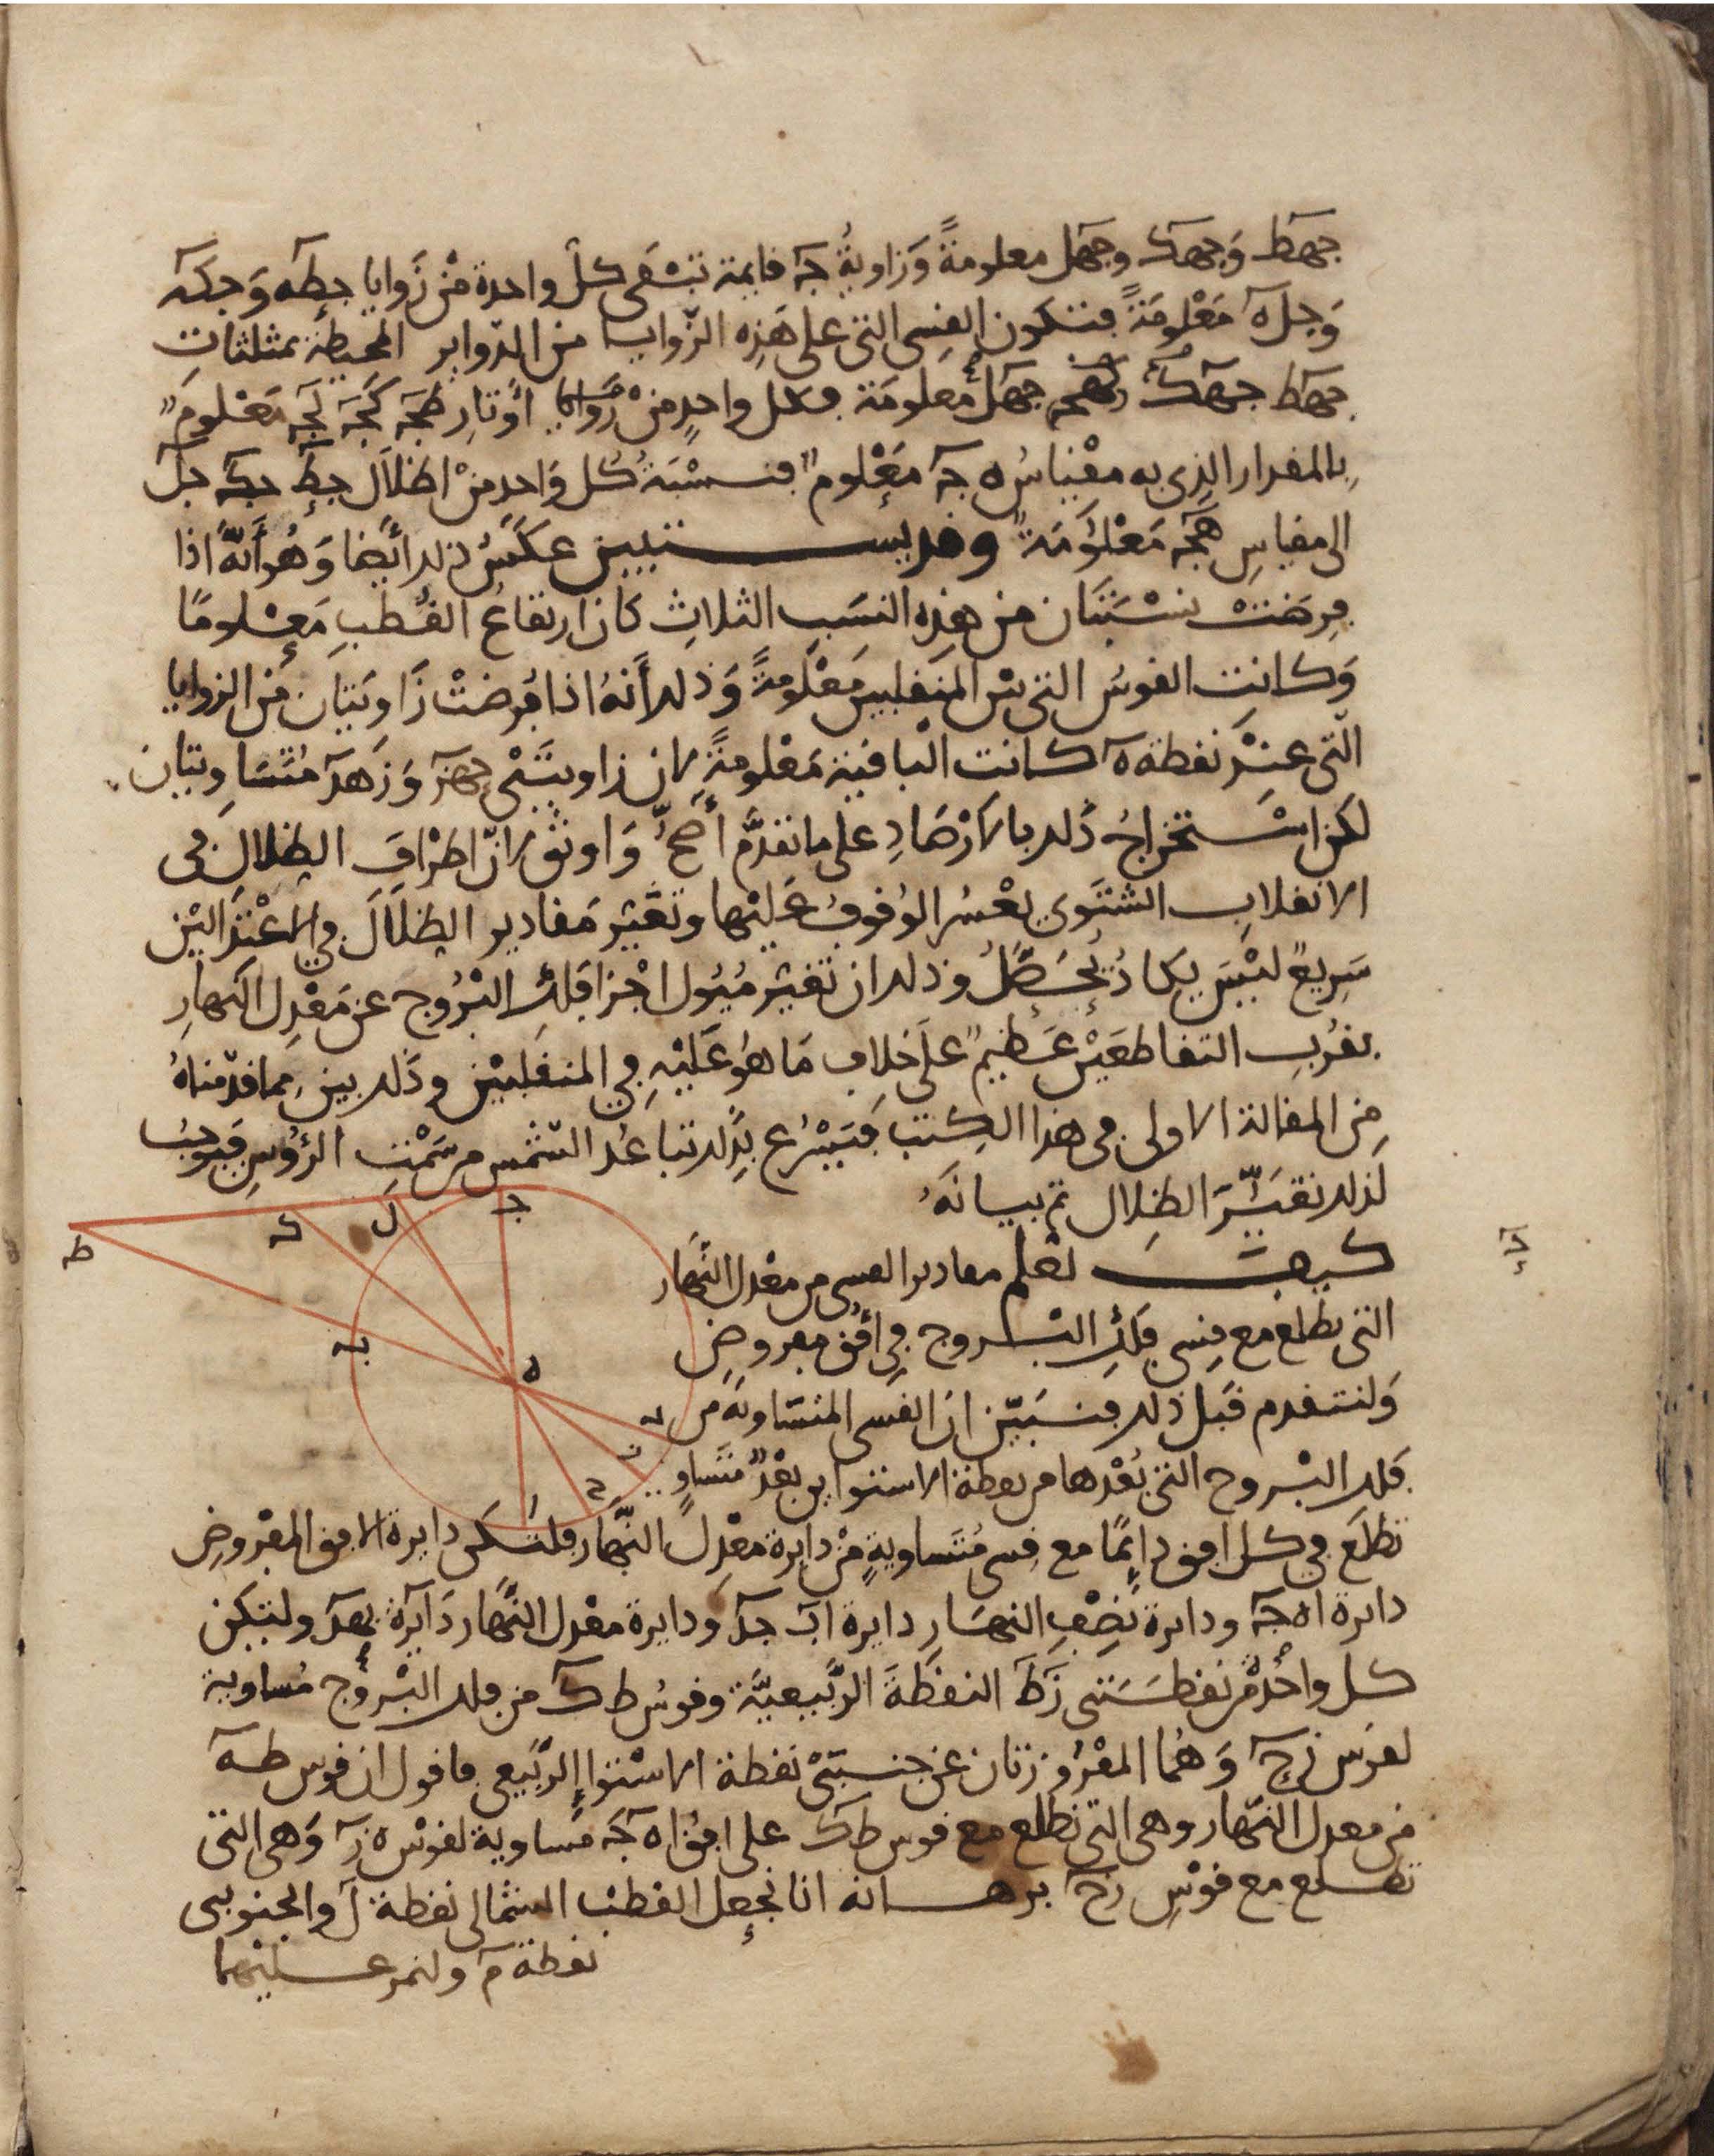 جهط وجهك وجهل معلومةً وزاويةُ جه قايمة تبقى كل واحدة من زوايا جطه وجكه
وجله معلومةً فتكون القسى التى على هذه الزوايا من الدواير المحيطة بمثلثات
جهط جهك جهل معلومة وكل واحد من اوتار طجه كجه لجه معلوم
بالمقدار الذى به مقياس ه جه معلوم فنسبة كل واحد من اظلال جط جك جل
الى مقياس هجه معلومة وقد يستبين عكس ذلك ايضا وهو أنه اذا
فرضت نسبتان من هذه النسب الثلاث كان ارتفاع القطب معلومًا
وكانت القوس التى بين المنقلبين معلومةً وذلك أنه اذا فرضت زاويتان من الزوايا
التى عند نقطة ه كانت الباقية معلومةً لان زاويتى جهز وزهد متساويتان
لكن استخراج ذلك بالارصاد على ما تقدم أصح واوثق لان اطراف الظلال فى
الانقلاب الشتوى يعسر الوقوف عليها وتغير مقادير الظلال فى الاعتدالين
سريع ليس يكاد يحصل وذلك ان تغير ميول اجزا فلك البروج عن معدل النهار
بقرب التقاطعين عظيم على خلاف ما هو عليه فى المنقلبين وذلك بين مما قدمناه
من المقالة الاولى فى هذا الكتب فيسرع بذلك تباعد الشمس من سمت الرؤس فيوجب
لذلك تغير الظلال تم بيانه
كد
كيف تعلم مقادير القسى من معدل النهار
التى تطلع مع قسى فلك البروج فى أفق مفروض
ولنتقدم قبل ذلك فنبين ان القسى المتساوية من
فلك البروج التى بعدها من نقطة الاستوا بن بعد متساو
تطلع فى كل افق دايمًا مع قسى متساوية من دايرة معدل النهار فلتكن دايرة الافق المفروض
دايرة اهجه ودايرة نصف النهار دايرة اب جد ودايرة معدل النهار دايرة بهد ولتكن
كل واحدة من نقطتى زط النقطة الربيعية وقوس طك من فلك البروج مساوية
لقوس زح وهما المفروزتان عن جنبتى نقطة الاستوا الربيعى فاقول ان قوس طه
من معدل النهار وهى التى تطلع مع قوس طك على افق اه جه مساوية لقوس ه ز وهى التى
تطلع مع قوس زح برهانه انا نجعل القطب الشمالى نقطة ل والجنوبى
نقطة م ولنمر عليهما
ط ك ل ج
به ه
د ز ح ا